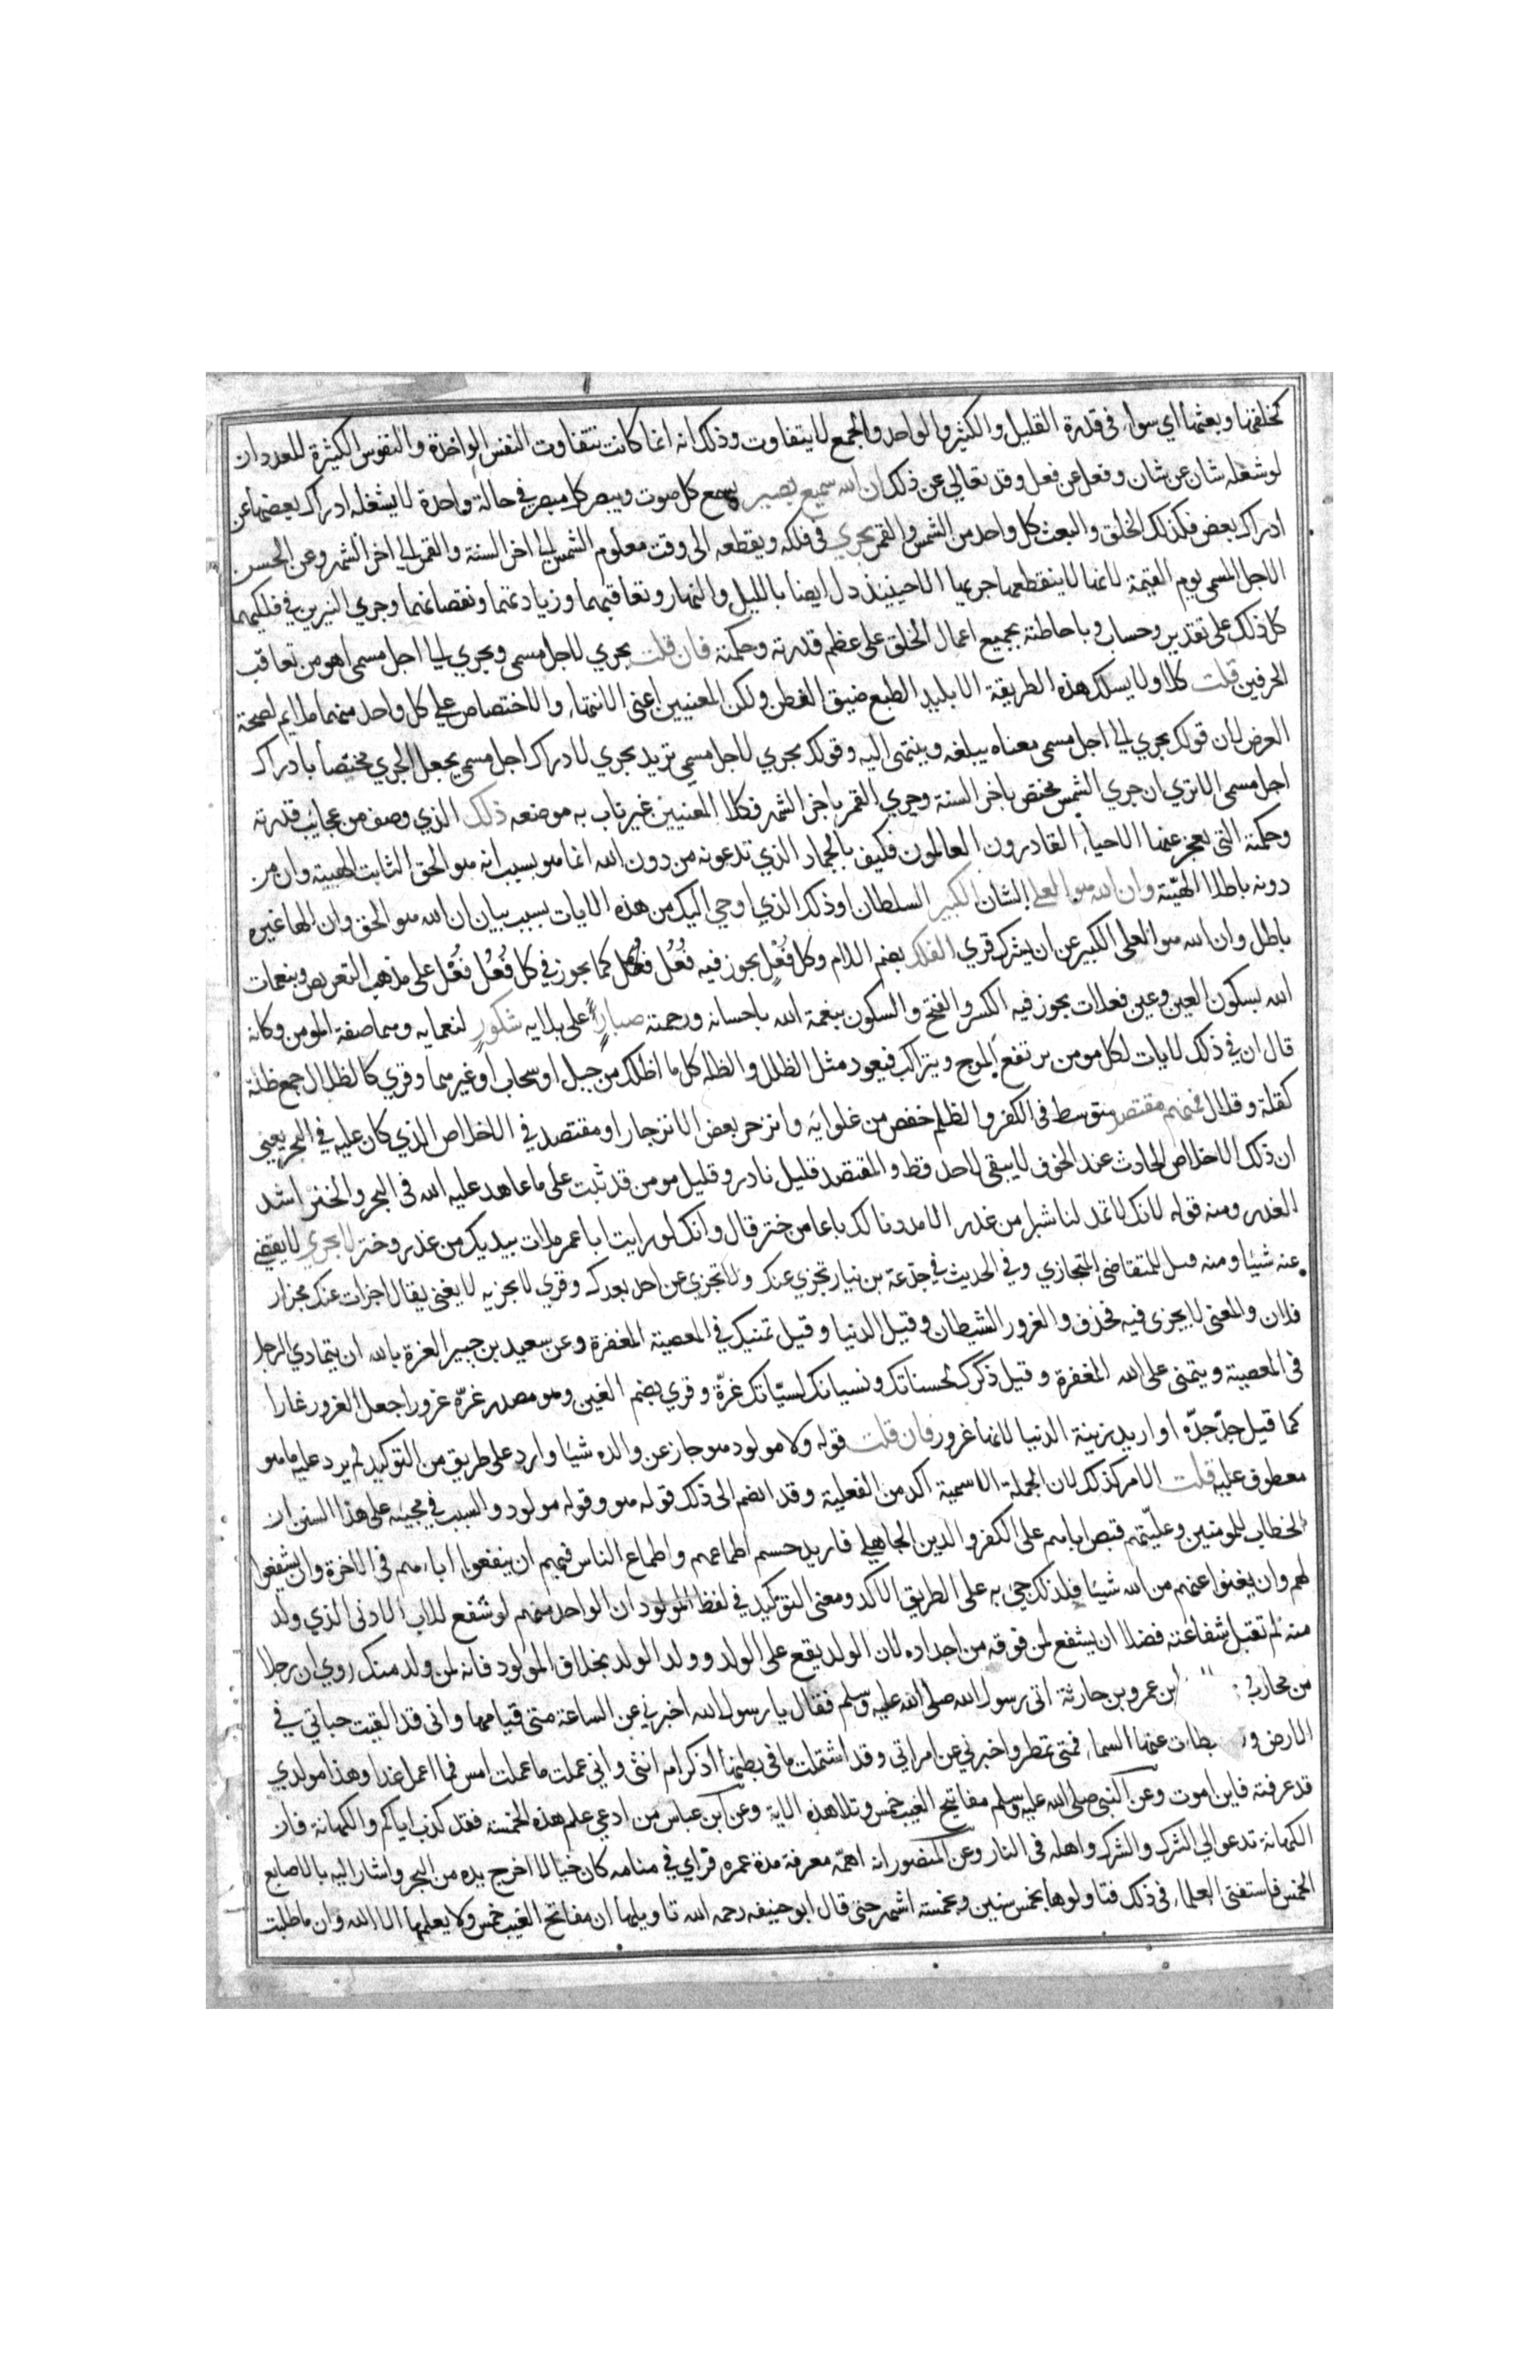 كخلقها وبعثها اي سواء في قدرة القليل والكثير والواحد والجمع لا يتفاوت وذلك انه انما كانت تتفاوت النفس الواحدة والنفوس الكثيرة للعدد ان
لو شغله شان عن شان وفعل عن فعل وقد تعالي عن ذلك ان الله سميع بصير يسمع كل صوت ويبصر كل مبصر في حالة واحدة لا يشغله ادراك بعضها عن
ادراك بعض فكذلك الخلق والبعث كل واحد من الشمس والقمر يجري في فلكه ويقطعه الى وقت معلوم الشمس الي اخر السنة والقمر الي اخر الشهر وعن الحسن
الاجل المسمى يوم القيمة لانهما لا ينقطع جريهما الا حينيذ دل ايضا بالليل والنهار وتعاقبهما وزيادتهما ونقصانهما وجري النيرين في فلكيهما
كل ذلك على تقدير وحساب وباحاطته بجميع اعمال الخلق على عظم قدرته وحكمته فان قلت يجري لاجل مسمى ويجري الي اجل مسمى اهو من تعاقب
الحرفين قلت كلا ولا يسلك هذه الطريقة الا بليد الطبع ضيق العطن ولكن المعنيين اعني الانتهاء والاختصاص علي كل واحد منهما ملايم لصحة
الغرض لان قولك يجري الي اجل مسمى معناه يبلغه وينتهى اليه وقولك يجري لاجل مسمى تريد يجري لادراك اجل مسمى يجعل الجري مختصا بادراك
اجل مسمى الا تري ان جري الشمس مختص باخر السنة وجري القمر باخر الشهر فكلا المعنيين غير ناب به موضعه ذلك الذي وصف من عجايب قدرته
وحكمته التي يعجز عنها الاحياء القادرون العالمون فكيف بالجماد الذي تدعونه من دون الله انما هو بسبب انه هو الحق الثابت الهيته وان من
دونه باطلا الهيّته وان الله هو العلي الشان الكبير السلطان او ذلك الذي اوحي اليك من هذه الايات بسبب بيان ان الله هو الحق وان الها غيره
باطل وان الله هو العلى الكبير عن ان يشرك قري الفلك بضم اللام وكل فُعْل يجوز فيه فُعُل كما يجوز في كل فُعُل فُعْل على مذهب التعويض وبنعمات
الله بسكون العين وعين فعلات يجوز فيه الكسر والفتح والسكون بنعمة الله باحسانه ورحمته صبارٍ على بلايه شكورٍ لنعمايه وهما صفة المومن وكانه
قال ان في ذلك لايات لكل مومن يرتفع الموج ويتراكب فيعود مثل الظلل والظله كل ما اظلك من جبل او سحاب او غيرهما وقري كالظلال جمع ظلة
كقلة وقلال فمنهم مقتصد متوسط في الكفر والظلم خفض من غلوايه وانزجر بعض الانزجار او مقتصد في الاخلاص الذي كان عليه في البحر يعني
ان ذلك الاخلاص الحادث عند الخوف لا يبقى لاحد قط والمقتصد قليل نادر وقليل مومن قد ثبت على ما عاهد عليه الله في البحر والختر اشد
الغدر ومنه قوله لانك لا تمد لنا شبرا من غدر الا مددنا لك باعا من ختر قال وانك لو رايت ابا عمير ملات يديك من غدر وختر لا يجري لا يقضي
عنه شيئا ومنه للمتقاضى المتجازي وفي الحديث في جذعة بن نيار تجزي عنك ولا تجزي عن احد بعدك وقري لا يجزيه لا يغنى يقال اجزات عنك مجزا
فلان والمعنى لا يجزى فيه فحذف والغرور الشيطان وقيل الدنيا وقيل تمنيك في المعصية المغفرة وعن سعيد بن جبير الغرة بالله ان يتمادي الرجل
في المعصية ويتمنى على الله المغفرة وقيل ذكرك لحسناتك ونسيانك لسيّاتك غرّة وقري بضم الغين وهو مصدر غرّه غرورا جعل الغرور غارا
كما قيل جدّ جدّه او اريد بزينة الدنيا لانها غرور فان قلت قوله ولا مولود هو جاز عن والده شيئا وارد على طريق من التوكيد لم يرد عليه ما هو
معطوف عليه قلت الامر كذلك لان الجملة الاسمية اكد من الفعلية وقد انضم الى ذلك قوله هو وقوله مولود والسبب في مجيئه على هذا السنن ان
الخطاب للمومنين وعليّتهم قبض اباهم على الكفر والدين الجاهلي فاريد حسم اطماعهم واطماع الناس فيهم ان ينفعوا اباءهم في الاخرة وان يشفعوا
لهم وان يغنوا عنهم من الله شيئا فلذلك جيء به على الطريق الاكد ومعنى التوكيد في لفظ المولود ان الواحد منهم لو شفع للاب الادنى الذي ولد
منه لم تقبل شفاعته فضلا ان يشفع لمن فوقه من اجداده لان الولد يقع على الولد وولد الولد بخلاف المولود فانه لمن ولد منك روي ان رجلا
من محارب ابن عمرو بن حارثة اتى رسول الله صلى الله عليه وسلم فقال يا رسول الله اخبرني عن الساعة متى قيامها وانى قد القيت حباتي في
الارض و بطات عنها السماء فمتى تمطر واخبرني عن امراتي وقد اشتملت ما في بطنها اذكر ام انثى واني عملت ما عملت امس فما اعمل غدا وهذا مولدي
قد عرفته فاين اموت وعن النبي صلى الله عليه وسلم مفاتيح الغيب خمس وتلا هذه الاية وعن ابن عباس من ادعي علم هذه الخمسة فقد كذب اياكم والكهانة فان
الكهانة تدعو الي الشرك والشرك واهله في النار وعن المنصور انه اهمّه معرفة مدة عمره فراي في منامه كان خيالا اخرج يده من البحر واشار اليه بالاصابع
الخمس فاستفتى العلماء في ذلك فتاولوها بخمس سنين وبخمسة اشهر حتى قال ابو حنيفه رحمه الله تاويلها ان مفاتح الغيب خمس ولا يعلمها الا الله وان ما طلبت